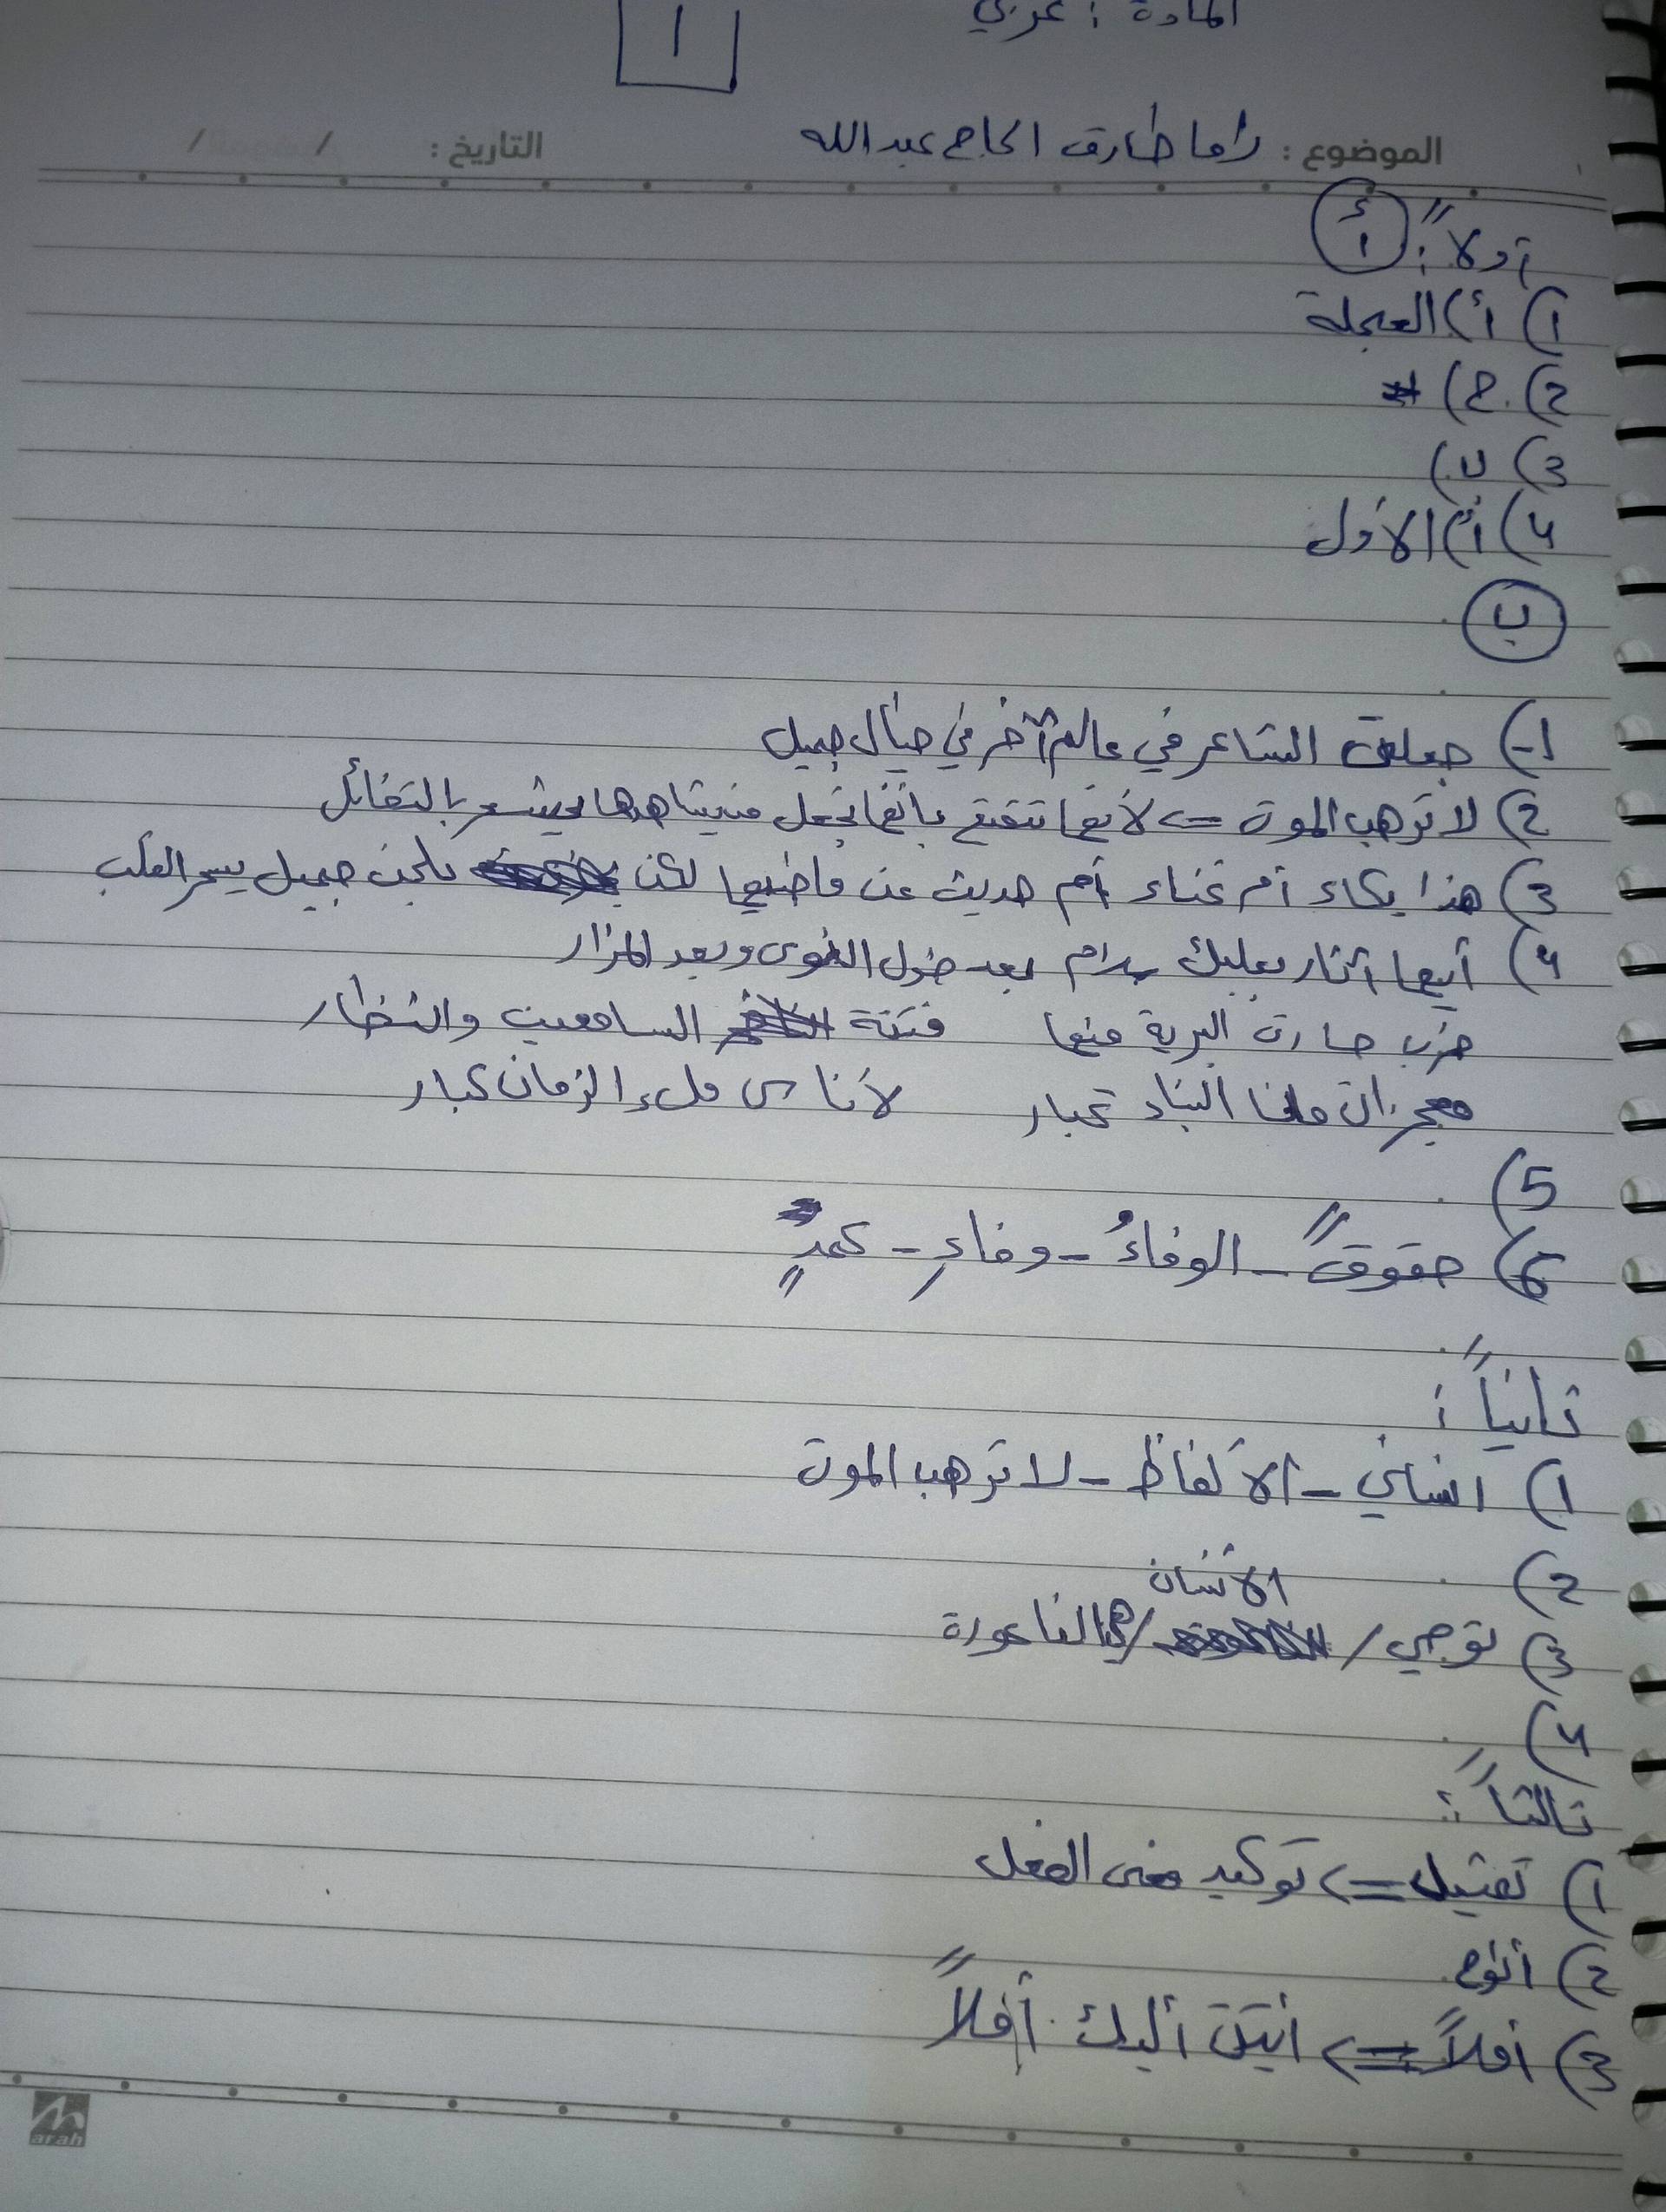 المادة : عربي
1
الموضوع : راما طارق الحاج عبدالله
التاريخ : / /
أولاً : أ
1) أ) العجلة
2) ح)
3) ب)
4) أ) الأول
ب
1-) جعلت الشاعر في عالم آخر في خيال جميل
2) لا ترهب الموت => لأنها تتمتع بأنها تجعل من يشاهدها يشعر بالتفائل
3) هذا بكاء أم غناء أم حديث عن ماضيها لكن بلحن جميل يسحر القلب
4) أيها آثار بعلبك سلام بعد طول النوى وبعد المزار
خرب حارت البرية فيها فتنة السامعين والنظار
معجزات من البناء كبار لأناس ملء الزمان كبار
5)
6) حقوقٌ - الوفاءُ - وفاءِ - كمدٍ
ثانياً :
1) انساني - الألفاظ - لا ترهب الموت
2)
الأنسان
3) نوحي / / الناعورة
4)
ثالثاً :
1) تمثيل => توكيد معنى الفعل
2) أنوح
3) أملاً => أتيت أليك أملاً
arah